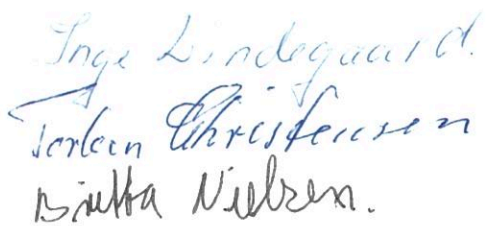 Inge Lindegaard.
Torben Christensen
Britta Nielsen.